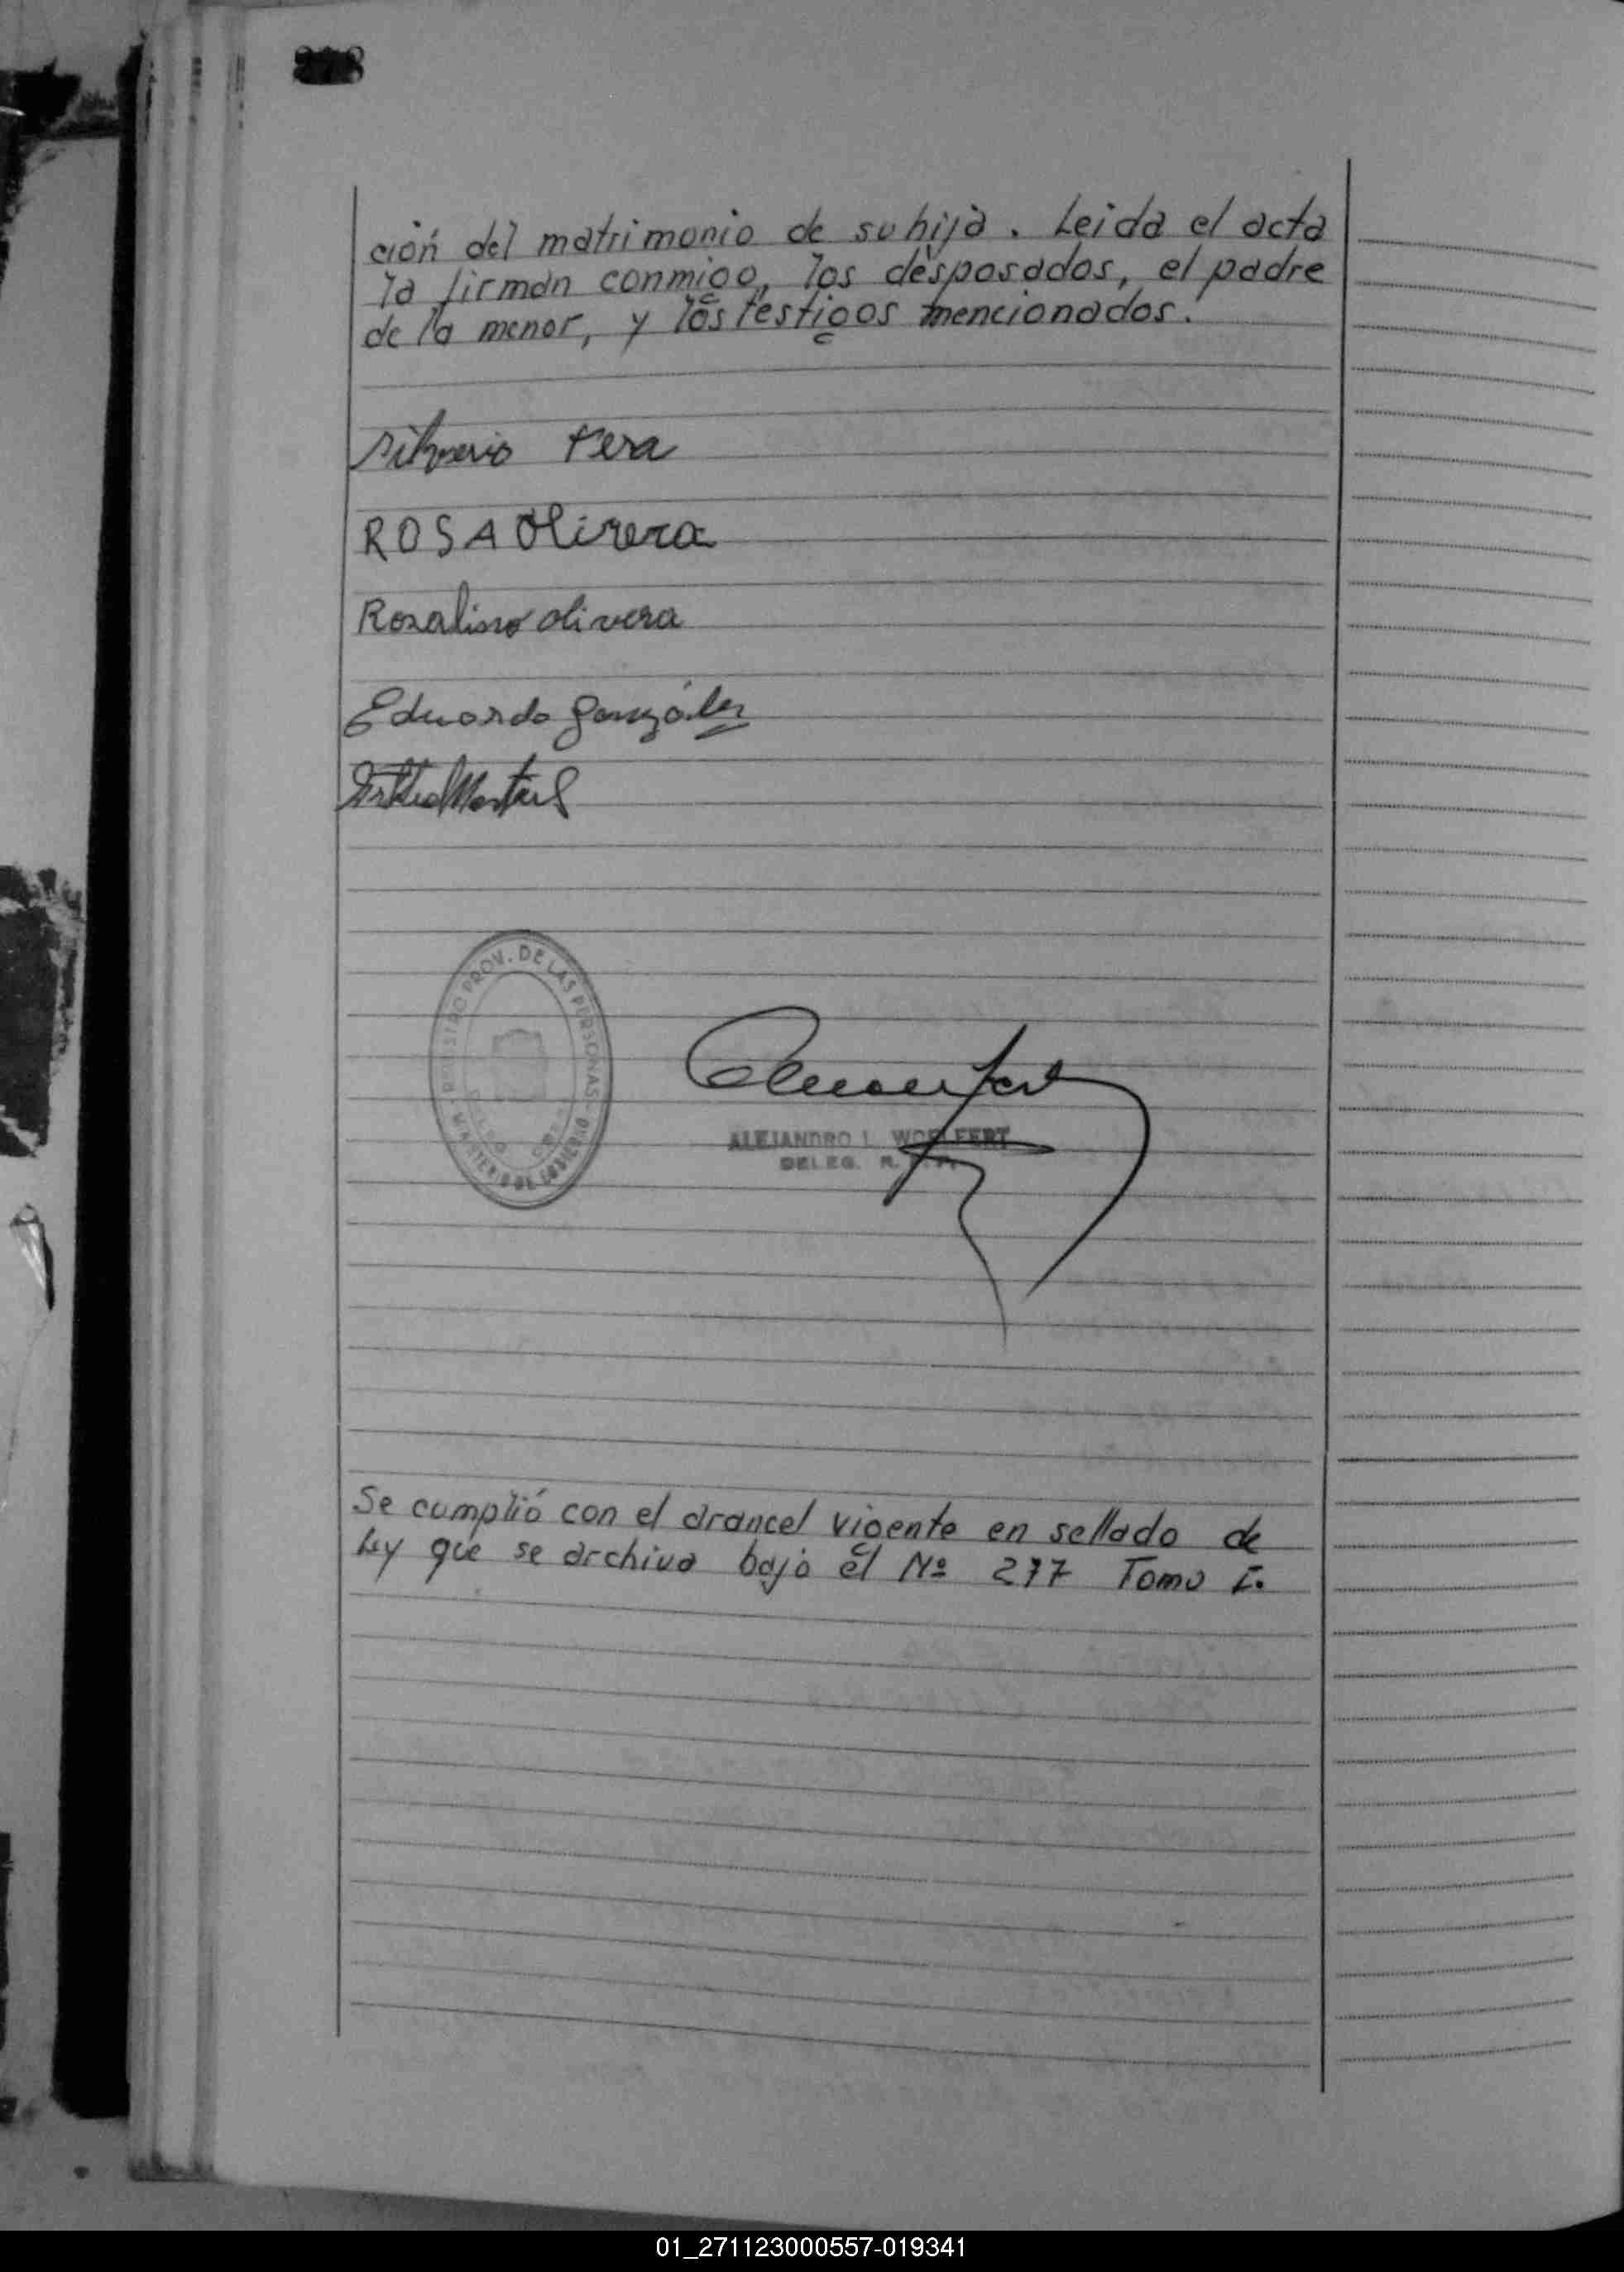 ción del matrimonio de su hija. Leida el acta
la firman conmigo, los desposados, el padre
de la menor, y los testigos mencionados.
Silverio Vera
ROSA Olivera
Rosalino olivera
Eduardo González
REGISTRO PROV. DE LAS PERSONAS - MINISTERIO DE GOBIERNO
ALEJANDRO L. WOELFERT
DELEG. R.
Se cumplió con el arancel vigente en sellado de
Ley que se archiva bajo el Nº 277 Tomo I.
01_271123000557-019341